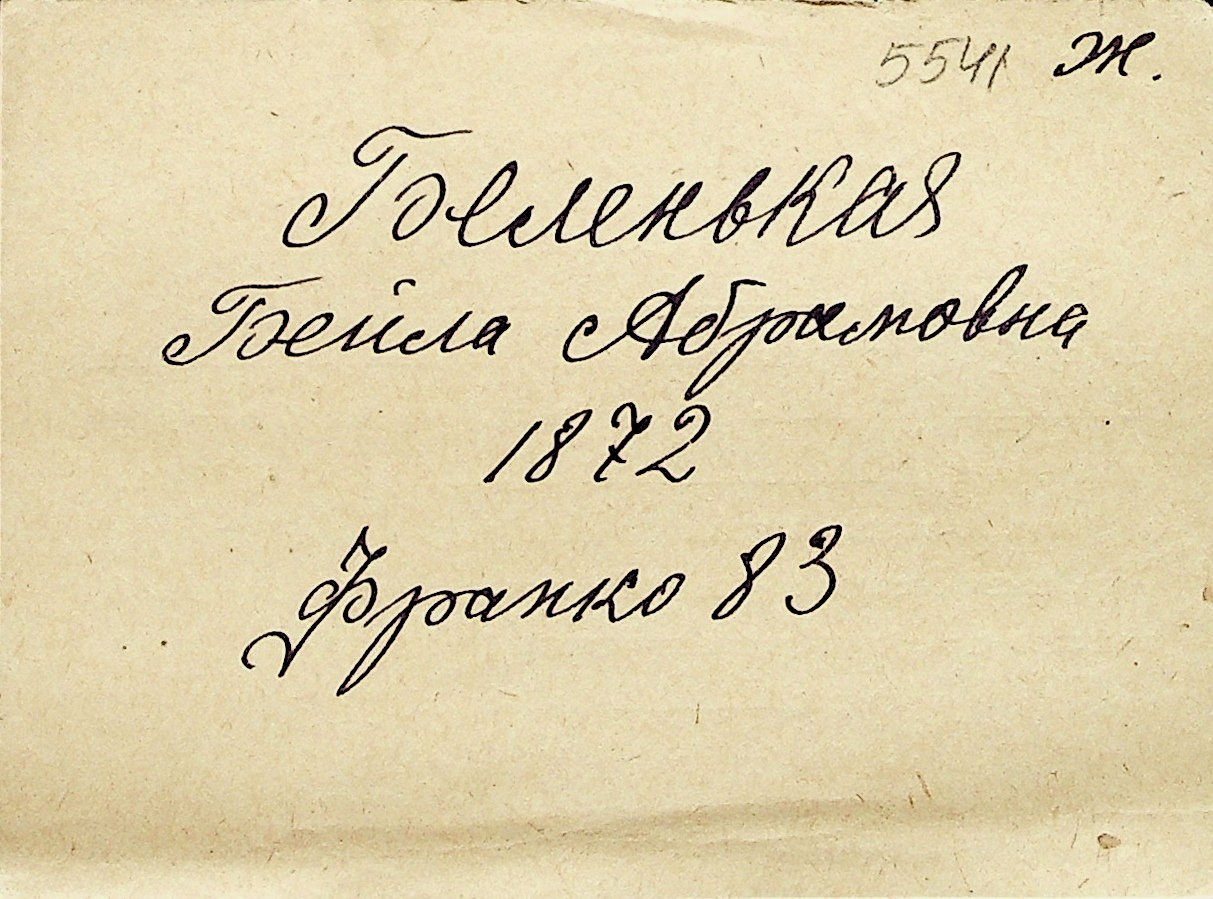 5541 ж.
Беленькая
Бейла Абрамовна
1872
Франко 83